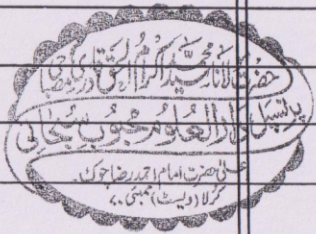 حضرت مولانا سید محمد اکرام الحق قادری مصباحی
پرنسپل دارالعلوم محبوب سبحانی
اعلیٰ حضرت امام احمد رضا چوک،
کرلا (ویسٹ) ممبئی ۷۰